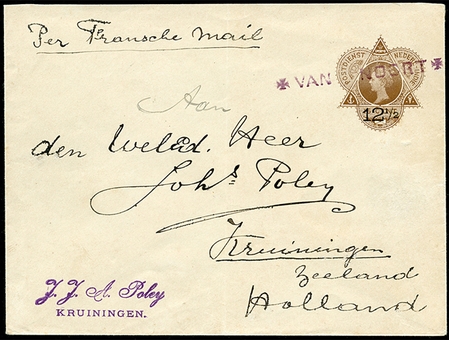 Per Fransche Mail
VAN NOORT
POSTDIENST NEDERL. INDIE
12 1/2
Aan
den WelEd. Heer
Johs. Poley
Kruiningen
Zeeland
Holland
J. J. A. Poley
KRUININGEN.